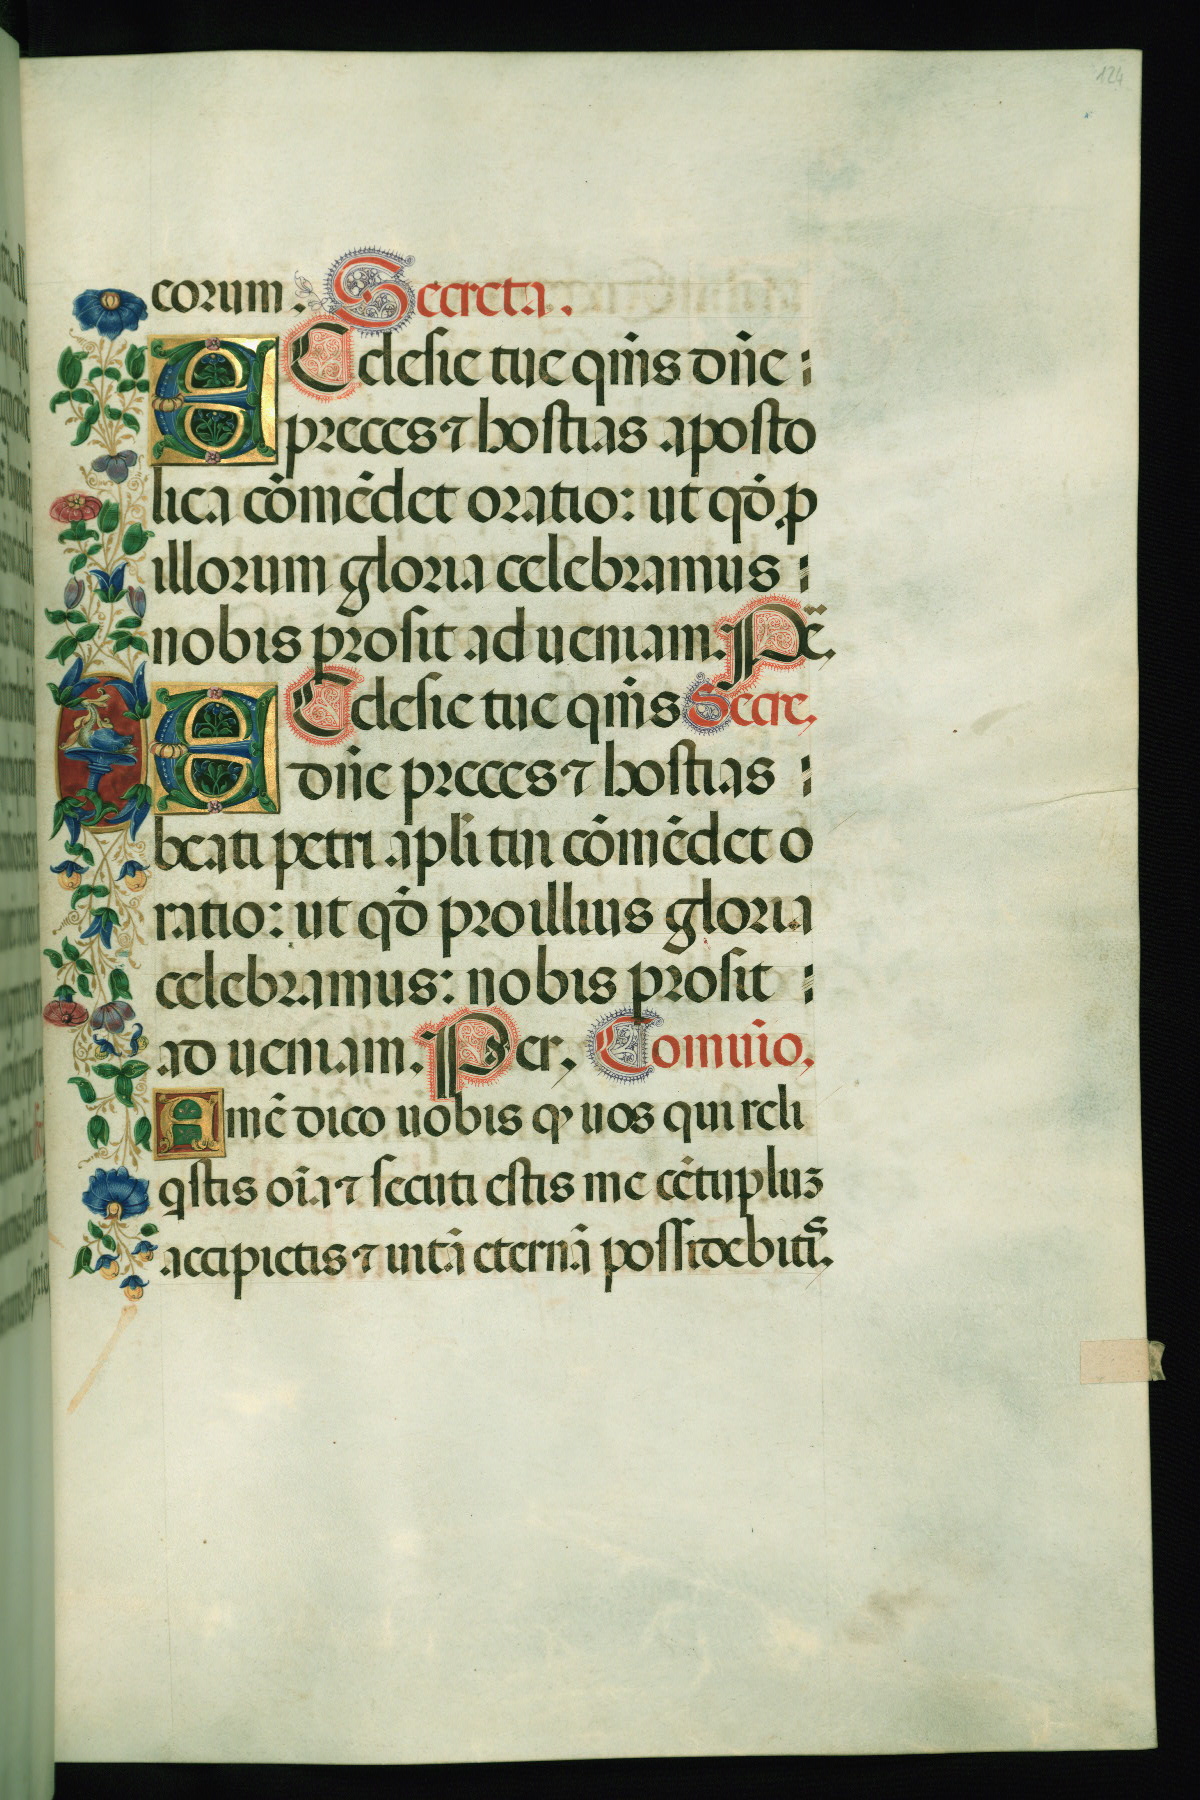 124
corum. Secreta.
ECclesie tue q̄m̄s dn̄e :
preces ⁊ hostias aposto
lica cōmēdet oratio: ut qd̄ p̱
illorum gloria celebramus :
nobis prosit ad ueniam. Pē.
ECclesie tue q̄m̄s Secre.
dn̄e preces ⁊ hostias :
beati petri apl̄i tui cōmēdet o
ratio: ut qd̄ pro illius gloria
celebramus: nobis prosit :
ad ueniam. Per. Comuīo.
Amē dico uobis ꝙ uos qui reli
qstis oīa ⁊ secuti estis me cētupluʒ
accipietis ⁊ uitā eternā possidebitis.